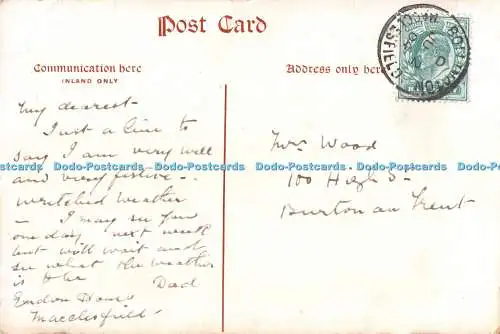 Post Card
Communication here
INLAND ONLY
Address only here
My dearest -
Just a line to
say I am very well
and very festive -
wretched weather
- I may see you
one day next week
but will wait and
see what the weather
is like Dad
Macclesfield -
Mrs Wood
100 High St
Burton on Trent
Dodo-Postcards Dodo-Postcards Dodo-Postcards Dodo-Postcards Dodo-Postcards